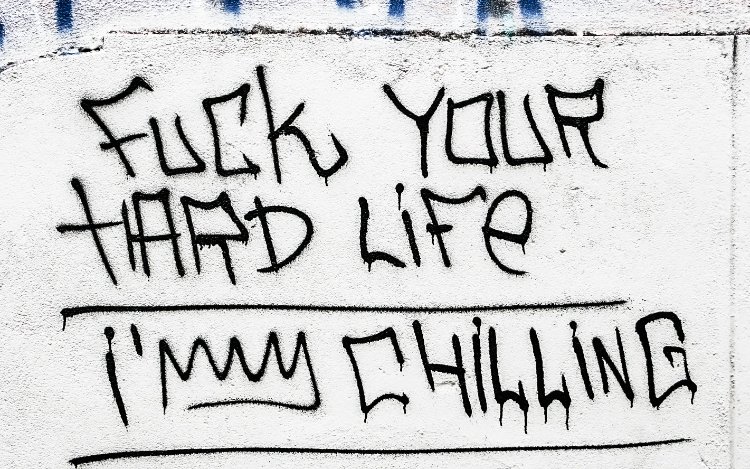 FUCK YOUR
HARD LiFe
i'M CHiLLiNG